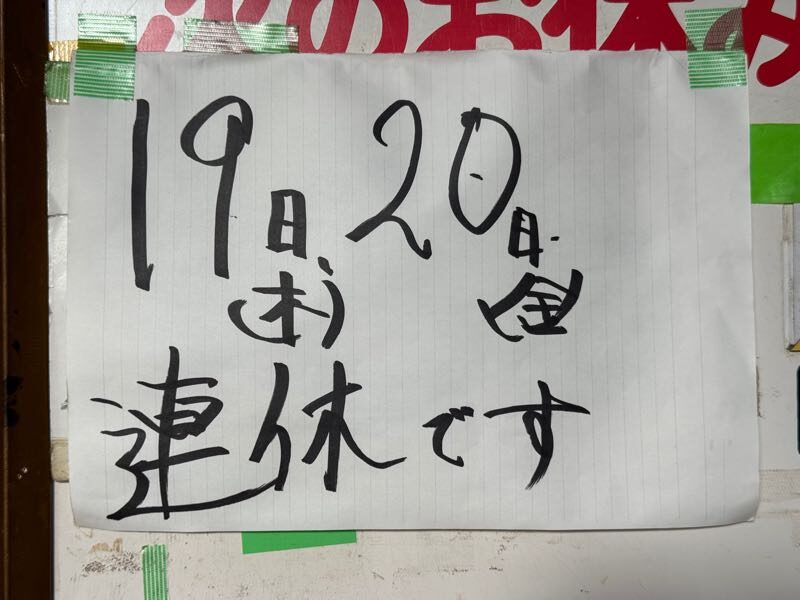 次のお休み
19日、20日
(木) (金)
連休です